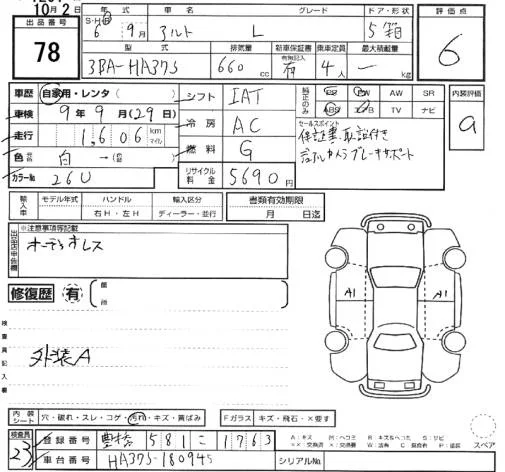 10月2日
出品番号 78
年式 車名 グレード ドア・形状 評価点
S・H・R 6年9月 アルト L 5/箱 6
型式 排気量 新車保証書 乗車定員 最大積載量
有無記入
3BA-HA37S 660cc 有 4人 —kg
車歴 自家用・レンタ( ) シフト IAT 純正のみ SR PW AW SR 内装評価
車検 9年9月(29日) 冷房 AC ABS エアB TV ナビ a
走行 1,606km マイル 燃料 G セールスポイント
色 白→( ) 保証書・取説付き
カラーNo 26U リサイクル料金 5690円 デュアルカメラブレーキサポート
輸入車 モデル年式 ハンドル 輸入区分 書類有効期限
右H・左H ディーラー・並行 月 日迄
出品店申告欄 ※注意事項等記載
オーディオレス
修復歴 有 箇所
A1 A1
検査員記入欄 外装A
内装シート 穴・破れ・スレ・コゲ・汚れ・キズ・黄ばみ Fガラス キズ・飛石・×要す
検査員 23 登録番号 豊橋 581 こ 1763 A:キズ M:ヘコミ B:キズ&ヘコミ S:サビ スペア
車台番号 HA37S-180945 シリアルNo.